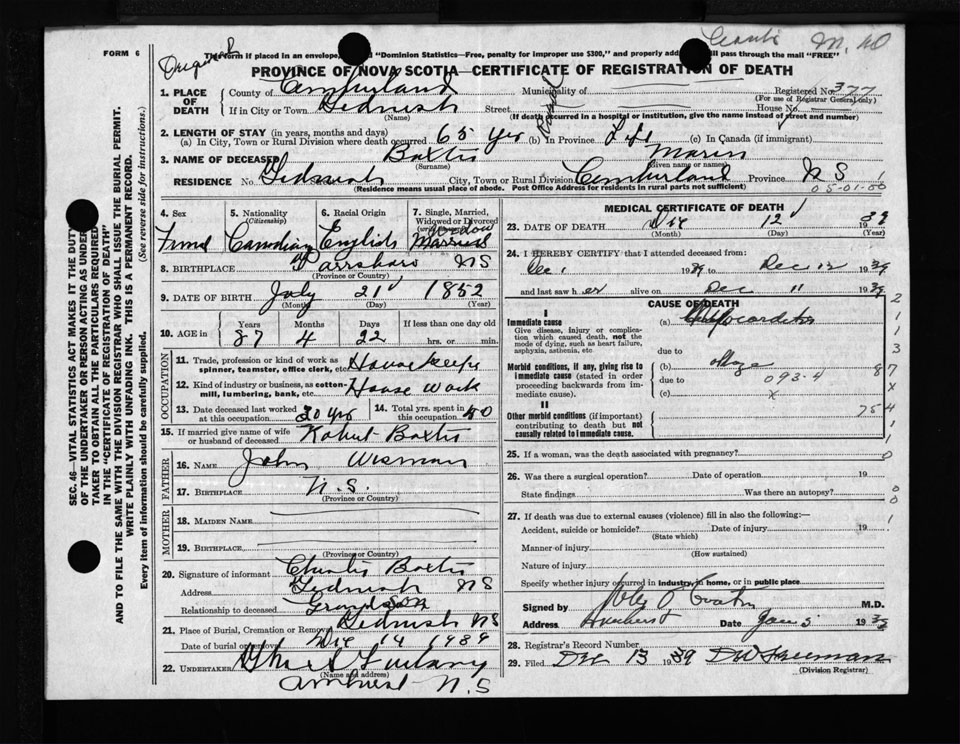 FORM 6
Original
This form if placed in an envelope, marked "Dominion Statistics—Free, penalty for improper use $300," and properly addressed will pass through the mail "FREE"
PROVINCE OF NOVA SCOTIA—CERTIFICATE OF REGISTRATION OF DEATH
1. PLACE OF DEATH
County of Cumberland Municipality of Registered No. 377
(For use of Registrar General only)
If in City or Town Gidnish Street House No.
(Name) (If death occurred in a hospital or institution, give the name instead of street and number)
2. LENGTH OF STAY (in years, months and days)
(a) In City, Town or Rural Division where death occurred 65 yrs (b) In Province Life (c) In Canada (if immigrant)
3. NAME OF DECEASED Baxter
(Surname) (Given name or names)
RESIDENCE No. Gidnish City, Town or Rural Division Cumberland Province N S
(Residence means usual place of abode. Post Office Address for residents in rural parts not sufficient)
05-01-00
SEC. 46—VITAL STATISTICS ACT MAKES IT THE DUTY
OF THE UNDERTAKER OR PERSON ACTING AS UNDER-
TAKER TO OBTAIN ALL THE PARTICULARS REQUIRED
IN THE "CERTIFICATE OF REGISTRATION OF DEATH"
AND TO FILE THE SAME WITH THE DIVISION REGISTRAR WHO SHALL ISSUE THE BURIAL PERMIT.
WRITE PLAINLY WITH UNFADING INK. THIS IS A PERMANENT RECORD.
Every item of information should be carefully supplied. (See reverse side for instructions.)
4. Sex 5. Nationality (Citizenship) 6. Racial Origin 7. Single, Married, Widowed or Divorced
Widow
Canadian English Married
8. BIRTHPLACE Parrsboro N S
(Province or Country)
9. DATE OF BIRTH July 21 1852
(Month) (Day) (Year)
10. AGE in Years Months Days If less than one day old
87 4 22 hrs. or min.
OCCUPATION
11. Trade, profession or kind of work as spinner, teamster, office clerk, etc. House keeper
12. Kind of industry or business, as cotton-mill, lumbering, bank, etc. House work
13. Date deceased last worked at this occupation 20 yrs 14. Total yrs. spent in this occupation 50
15. If married give name of wife or husband of deceased Robert Baxter
FATHER
16. NAME John Wisman
17. BIRTHPLACE N.S.
(Province or Country)
MOTHER
18. MAIDEN NAME
19. BIRTHPLACE
(Province or Country)
20. Signature of informant Charles Baxter
Address Gidnish N S
Relationship to deceased Grand son
21. Place of Burial, Cremation or Removal Gidnish N S
Date of burial or removal Dec 14 1939
22. UNDERTAKER
(Name and address)
Amherst N. S
MEDICAL CERTIFICATE OF DEATH
23. DATE OF DEATH Dec 12 39
(Month) (Day) (Year)
24. I HEREBY CERTIFY that I attended deceased from:
Dec 1 1939 to Dec 12 1939
and last saw her alive on Dec 11 1939
CAUSE OF DEATH
I
Immediate cause (a) Myocarditis
Give disease, injury or complication which caused death, not the mode of dying, such as heart failure, asphyxia, asthenia, etc
due to
Morbid conditions, if any, giving rise to immediate cause (stated in order proceeding backwards from immediate cause). (b) old age
due to 093-4
(c) x
II
Other morbid conditions (if important) contributing to death but not causally related to immediate cause.
75
2 1 1 3 87 x 4 1 0
25. If a woman, was the death associated with pregnancy?
26. Was there a surgical operation? Date of operation 19
State findings Was there an autopsy?
27. If death was due to external causes (violence) fill in also the following:—
Accident, suicide or homicide? Date of injury 19
(State which)
Manner of injury
(How sustained)
Nature of injury
Specify whether injury occurred in industry, in home, or in public place
Signed by M.D.
Address Amherst Date Jan 5 1939
28. Registrar's Record Number
29. Filed Dec 13 1939 D W Freeman
(Division Registrar)